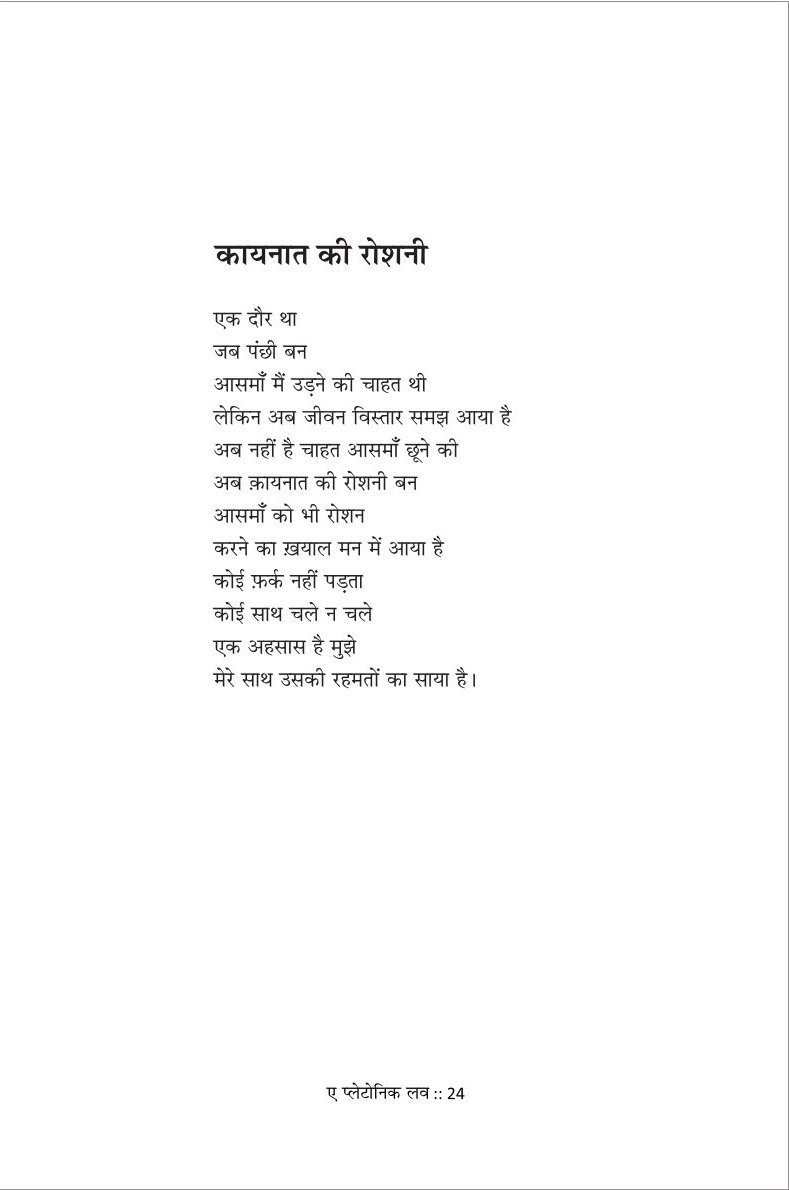 कायनात की रोशनी
एक दौर था
जब पंछी बन
आसमाँ मैं उड़ने की चाहत थी
लेकिन अब जीवन विस्तार समझ आया है
अब नहीं है चाहत आसमाँ छूने की
अब क़ायनात की रोशनी बन
आसमाँ को भी रोशन
करने का ख़याल मन में आया है
कोई फ़र्क नहीं पड़ता
कोई साथ चले न चले
एक अहसास है मुझे
मेरे साथ उसकी रहमतों का साया है।
ए प्लेटोनिक लव :: 24